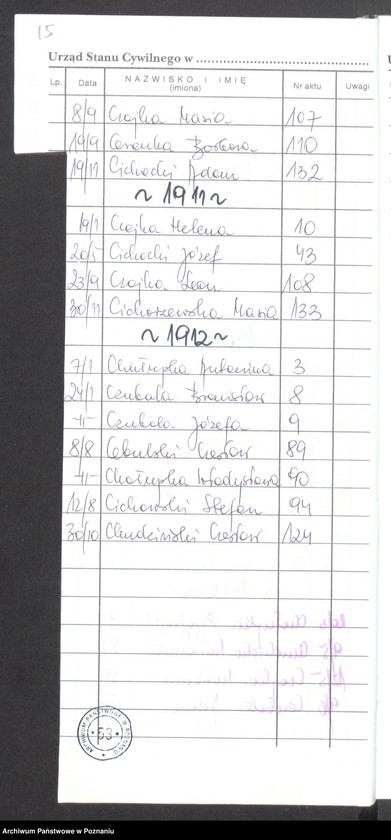 15
Urząd Stanu Cywilnego w
Lp. Data NAZWISKO I IMIĘ (imiona) Nr aktu Uwagi
8/9 Czajka Maria 107
19/9 Barbara 110
19/11 Cichocki Adam 132
~ 1911 ~
19/1 Czajka Helena 10
20/5 Cichocki Józef 43
23/9 Czajka Leon 108
30/11 Cichoszewska Maria 133
~ 1912 ~
7/1 Antonina 3
24/1 Czubala Bronisław 8
-11- Czubala Józefa 9
8/8 Cebulski Czesław 89
-11- Chałupka Władysława 90
12/8 Cichowski Stefan 94
30/10 Chudziński Czesław 124
ARCHIWUM PAŃSTWOWE W POZNANIU
53
Archiwum Państwowe w Poznaniu